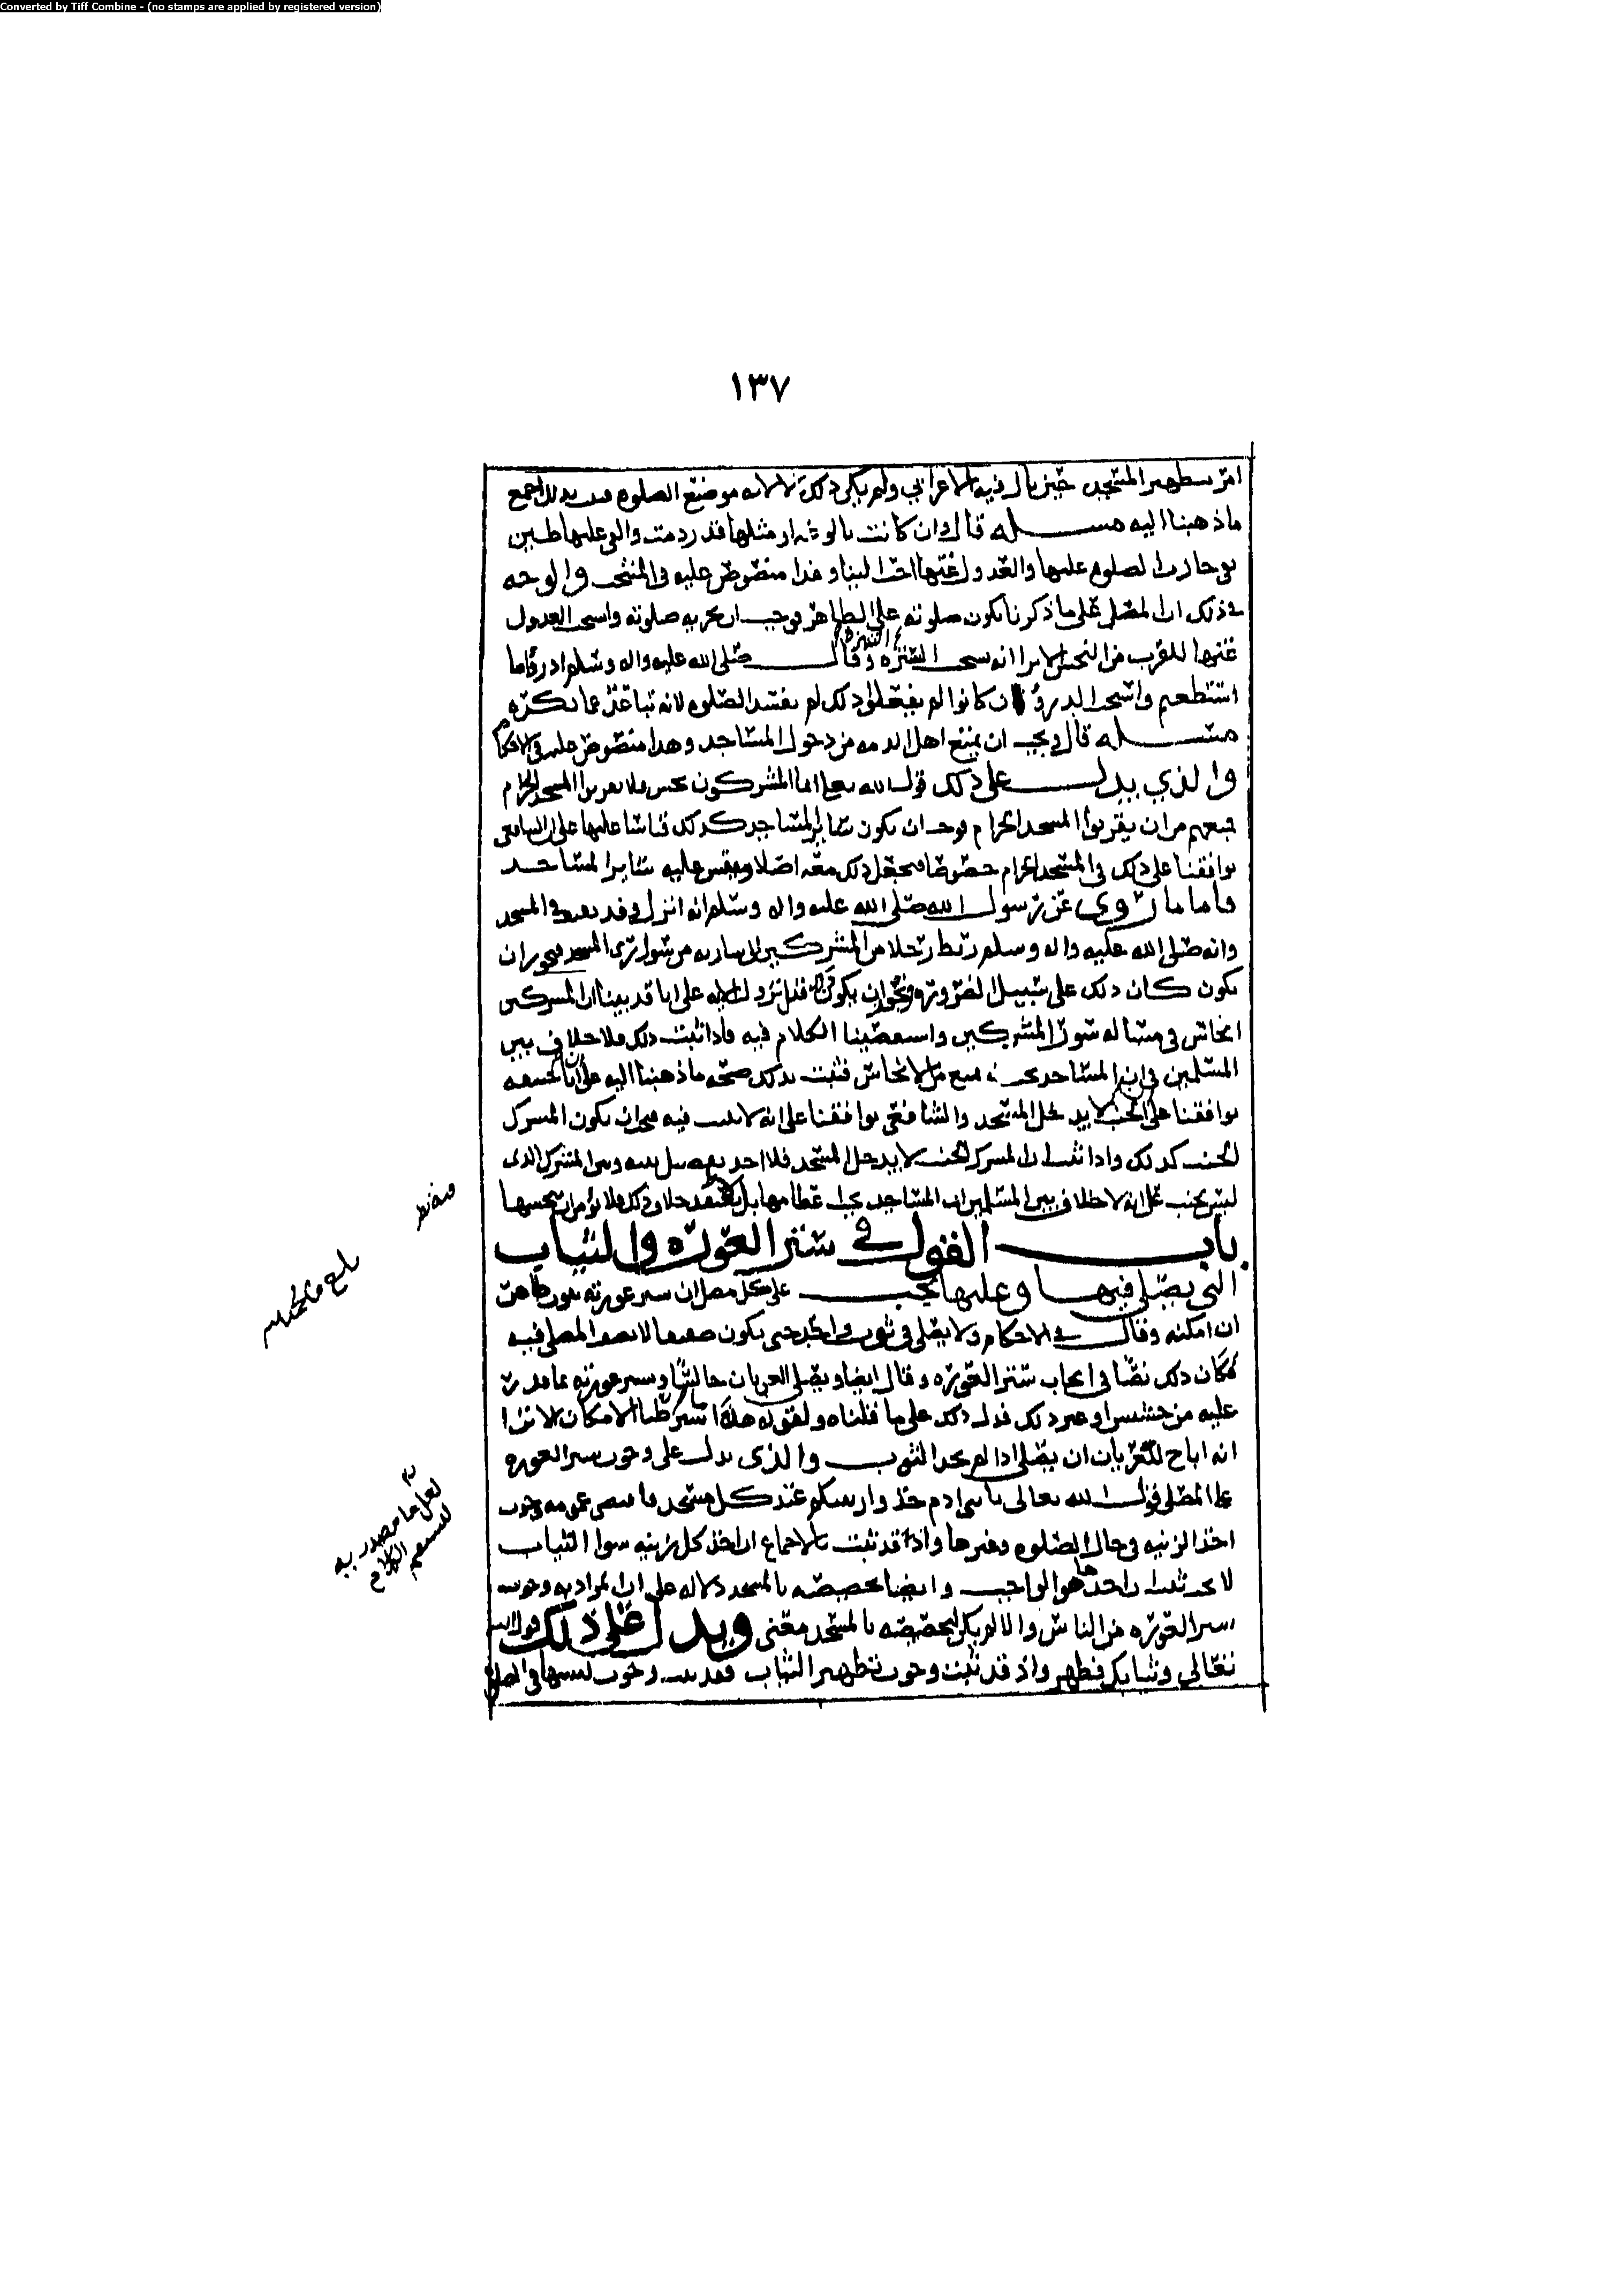 Converted by Tiff Combine - (no stamps are applied by registered version)
١٣٧
امر بتطهير المسجد حين بال فيه الاعرابي ولم يكن ذلك الا لانه موضع الصلوه فدل بذلك جميع
ما ذهبنا اليه مسله قال وان كانت بالوعه او مثلها قد ردمت والقي عليها طين
نقي جازت الصلوه عليها والعدول عنها احب الينا وهذا منصوص عليه في المنتخب والوجه
في ذلك ان المصلي على ما ذكرنا تكون صلوته على الطاهر فوجب ان تجزيه صلوته واستحب العدول
عنها للقرب من النجس الا ترا انه يستحب التنزه وقال صلى الله عليه واله وسلم ادرؤا ما
استطعتم واستحب الدرؤ وان كانوا لو لم يفعلوا ذلك لم تفسد الصلوه لانه تباعد عما يكره
مسله قال ويجب ان يمنع اهل الذمه من دخول المساجد وهذا منصوص عليه في الاحكام
والذي يدل على ذلك قول الله تعالى انما المشركون نجس فلا يقربوا المسجد الحرام
فمنعهم من ان يقربوا المسجد الحرام فوجب ان يكون سائر المساجد كذلك قياسا عليها على ان الشافعي
يوافقنا على ذلك في المسجد الحرام خصوصا فنجعل ذلك معه اصلا ونقيس عليه سائر المساجد
فاما ما روي عن رسول الله صلى الله عليه واله وسلم انه انزل وفد ثقيف في المسجد
وانه صلى الله عليه واله وسلم ربط رجلا من المشركين الى ساريه من سواري المسجد فيجوز ان
يكون كان ذلك على سبيل الضروره ويجوز ان يكون قبل نزول الايه على انا قد بينا ان المشركين
انجاس في مساله سور المشركين واستقصينا الكلام فيه فاذا ثبت ذلك فلا خلاف بين
المسلمين في ان المساجد يجب ان تمنع من الانجاس فثبت بذلك صحه ما ذهبنا اليه على ان ابا حنيفه
يوافقنا على ان الجنب لا يدخل المسجد والشافعي يوافقنا على انه لا يلبث فيه فيجب ان يكون المشرك
الجنب كذلك واذا ثبت ان المشرك الجنب لا يدخل المسجد فلا احد يفصل بينه وبين المشرك الذي
ليس بجنب على انه لا خلاف بين المسلمين ان المساجد يجب اعظامها بل يعتقد خلاف ذلك فلا يؤمن ان ينجسها
باب القول في ستر العوره والثياب
التي يصلى فيها وعليها يجب على كل مصل ان يستر عورته بثوب طاهر
ان امكنه وقال في الاحكام ولا يصلي في ثوب واحد حتى يكون صفيقا لا يصف المصلي فيه
فكان ذلك نصا في ايجاب ستر العوره وقال ايضا ويصلي العريان جالسا ويستر عورته بما قدر
عليه من حشيش او غير ذلك فدل ذلك على ما قلناه ولقوله هذا ما شرطنا الامكان الا ترا
انه اباح للعريان ان يصلي اذا لم يجد الثوب والذي يدل على وجوب ستر العوره
على المصلي قول الله تعالى يا بني ادم خذوا زينتكم عند كل مسجد فاقتضى عمومه وجوب
اخذ الزينه في حال الصلوه وغيرها واذ قد ثبت بالاجماع ان اخذ كل زينه سوا الثياب
لا يجب ثبت ان اخذها هو الواجب وايضا تخصيصه بالمسجد دلاله على ان المراد به وجوب
ستر العوره من الناس والا لم يكن لتخصيصه بالمسجد معنى ويدل على ذلك قول الله
تعالى وثيابك فطهر واذ قد ثبت وجوب تطهير الثياب فقد ثبت وجوب لبسها في الصلوه
لعل ما مصدريه
ليستقيم الكلام